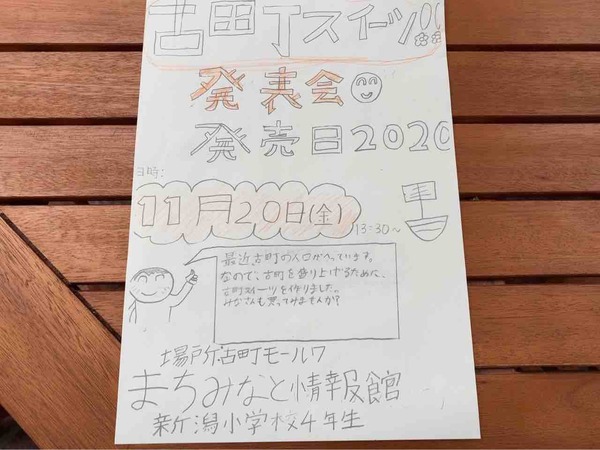 古町スイーツ!!
発表会
発売日2020
日時:
11月20日(金)
13:30~
最近、古町の人口がへっています。
なので、古町を盛り上げるために、
古町スイーツを作りました。
みなさんも買ってみませんか?
場所古町モール7
まちみなと情報館
新潟小学校4年生